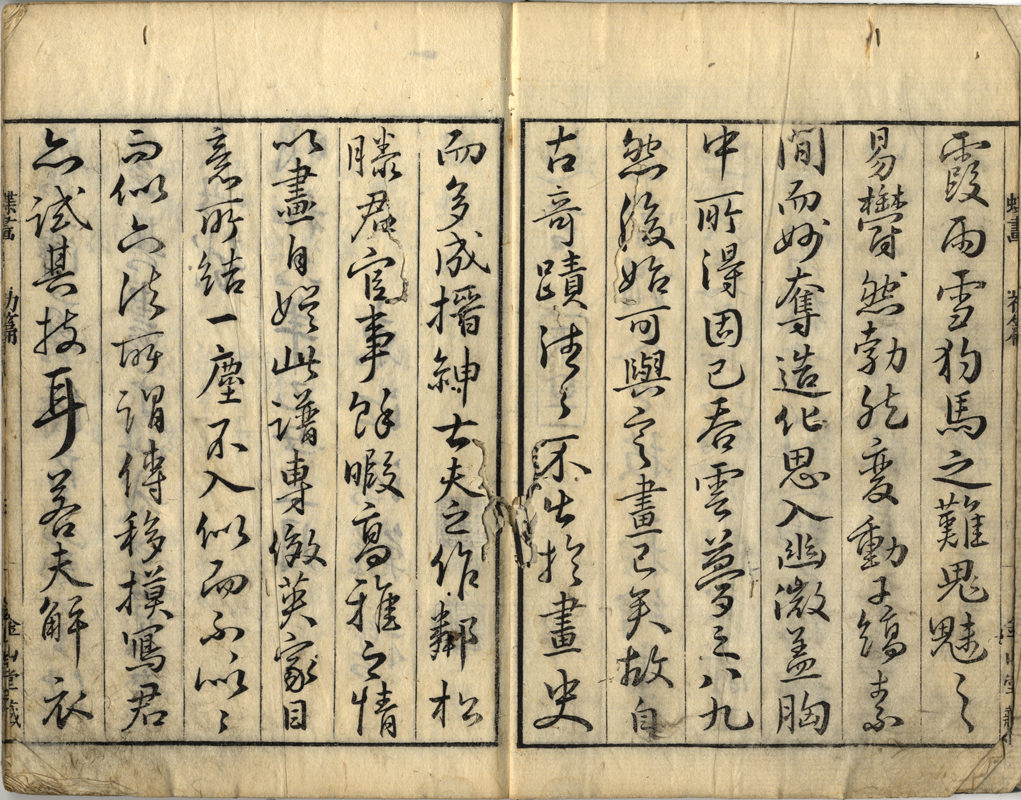 霞雨雪狗馬之難鬼魅之
易欝然勃然変動于縞素
間而妙奪造化思入幽微盖胸
中所得因已吞雲夢之八九
然後始可與言畫已矣故自
古奇蹟徃々不出於畫史
而多成搢紳士夫之作鄰松
滕君官事餘暇高雅之情
以畫自娯此譜専倣英家目
意所結一塵不入似而不似々
而似六法所謂傳移摸寫君
亦試其技耳若夫解衣